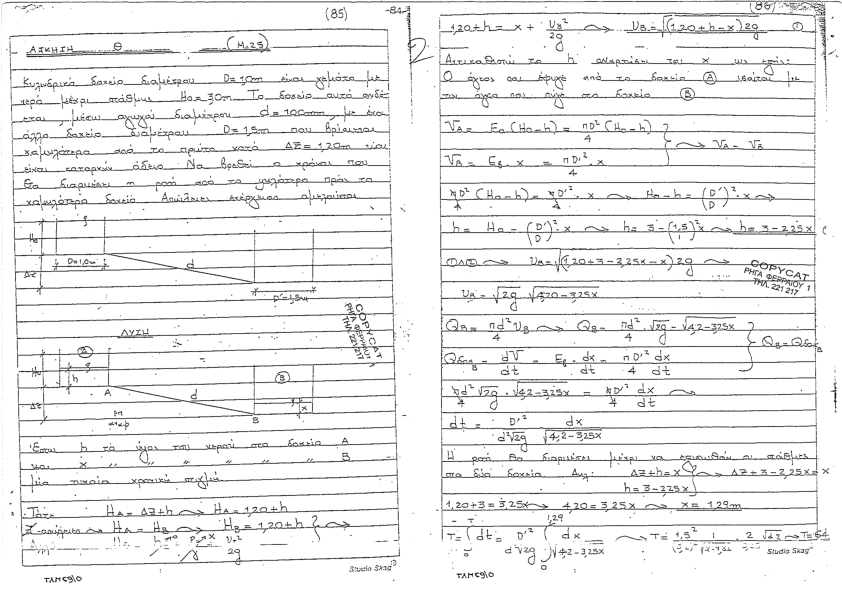 (85)
ΑΣΚΗΣΗ Θ (Μ.25)
Κυλινδρικό δοχείο διαμέτρου D=1,0m είναι γεμάτο με
νερό μέχρι στάθμης Ho=3,0m. Το δοχείο αυτό συνδέ
εται, μέσω αγωγού διαμέτρου d=100mm, με ένα
άλλο δοχείο διαμέτρου D=1,5m που βρίσκεται
χαμηλότερα από το πρώτο κατά ΔΖ=1,20m και
είναι καταρχήν άδειο. Να βρεθεί ο χρόνος που
θα διαρκέσει η ροή από το ψηλότερο προς το
χαμηλότερο δοχείο. Απώλειες ενέργειας αμελούνται
Ho
D=1,0m
d
ΔΖ
D'=1,5m
ΛΥΣΗ
COPYCAT
ΡΗΓΑ ΦΕΡΡΑΙΟΥ 1
ΤΗΛ. 221 217
Α
Ho
h
Β
A
d
ΔΖ
x
B
Έστω h το ύψος του νερού στο δοχείο Α
και x " " " " " " Β
μία τυχαία χρονική στιγμή.
Τότε: HA = ΔΖ+h ⇝ HA = 1,20+h
HA = HB ⇝ HB = 1,20+h
Studio Skag
ΤΛΗ 6910
(86)
1,20+h = x + UB²/2g ⇝ UB = √(1,20+h-x)2g ①
Αντικαθιστώ το h συναρτήσει του x ως εξής:
Ο όγκος που έφυγε από το δοχείο Ⓐ ισούται με
τον όγκο που πήγε στο δοχείο Ⓑ
VA = EA (Ho-h) = πD²/4 (Ho-h)
⇝ VA = VB
VB = EB · x = πD'²/4 · x
πD²/4 (Ho-h) = πD'²/4 · x ⇝ Ho-h = (D'/D)² · x ⇝
h = Ho - (D'/D)² · x ⇝ h = 3 - (1,5/1)² x ⇝ h = 3-2,25x
①∧② ⇝ UB = √(1,20+3-2,25x-x)2g ⇝
COPYCAT
ΡΗΓΑ ΦΕΡΡΑΙΟΥ 1
ΤΗΛ. 221 217
UB = √2g √4,20-3,25x
QB = πd²/4 UB ⇝ QB = πd²/4 · √2g · √4,2-3,25x
QB = Qδοχ B
Qδοχ B = dV/dt = EB · dx/dt = πD'²/4 dx/dt
πd²/4 √2g · √4,2-3,25x = πD'²/4 dx/dt ⇝
dt = D'²/d²√2g dx/√4,2-3,25x
Η ροή θα διαρκέσει μέχρι να εξισωθούν οι στάθμες
στα δύο δοχεία Δηλ: ΔΖ+h=x ⇝ ΔΖ+3-2,25x = x
h=3-2,25x
1,20+3=3,25x ⇝ 4,20=3,25x ⇝ x=1,29m
T = ∫ dt = D'²/d²√2g ∫ dx/√4,2-3,25x ⇝ T =
Studio Skag
ΤΛΗ 6910